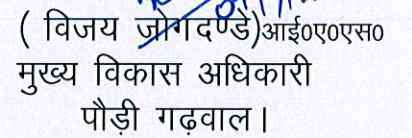 ( विजय जोगदण्डे)आई०ए०एस०
मुख्य विकास अधिकारी
पौड़ी गढ़वाल।